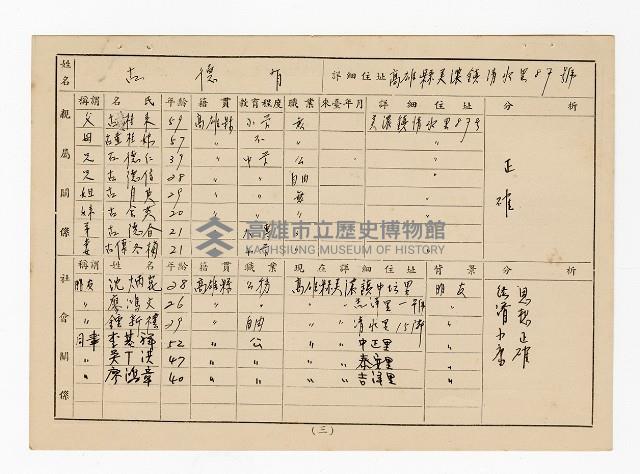 姓名 古 德 有 詳細住址 高雄縣美濃鎮清水里87號
親屬關係 稱謂 名氏 年齡 籍貫 教育程度 職業 來臺年月 詳細住址 分析
父 古 59 高雄縣 小學 農 美濃鎮清水里87号 正確
母 57 〃 不 〃
兄 古德仁 39 〃 中学 公 〃 〃
兄 古德信 28 〃 〃 自由 〃
姐 古 英 29 〃 〃 〃
妹 古 英 20 〃 〃 〃
弟 古德春 21 〃
妻 古傅冬 21 〃
高雄市立歷史博物館
KAOHSIUNG MUSEUM OF HISTORY
社會關係 稱謂 姓名 年齡 籍貫 職業 現在詳細住址 背景 分析
朋友 沈炳 28 高雄縣 公務 高雄縣美濃鎮中 里 朋友 思想正確
〃 廖鴻文 26 〃 〃 〃 〃 吉洋里 〃
〃 鍾新德 29 〃 自由 〃 〃 清水里151号 〃
同事 李基 52 〃 公 〃 〃 中正里 〃
〃 吳丁洪 47 〃 〃 〃 泰安里 〃
〃 廖鴻章 40 〃 〃 〃 吉洋里 〃
(三)